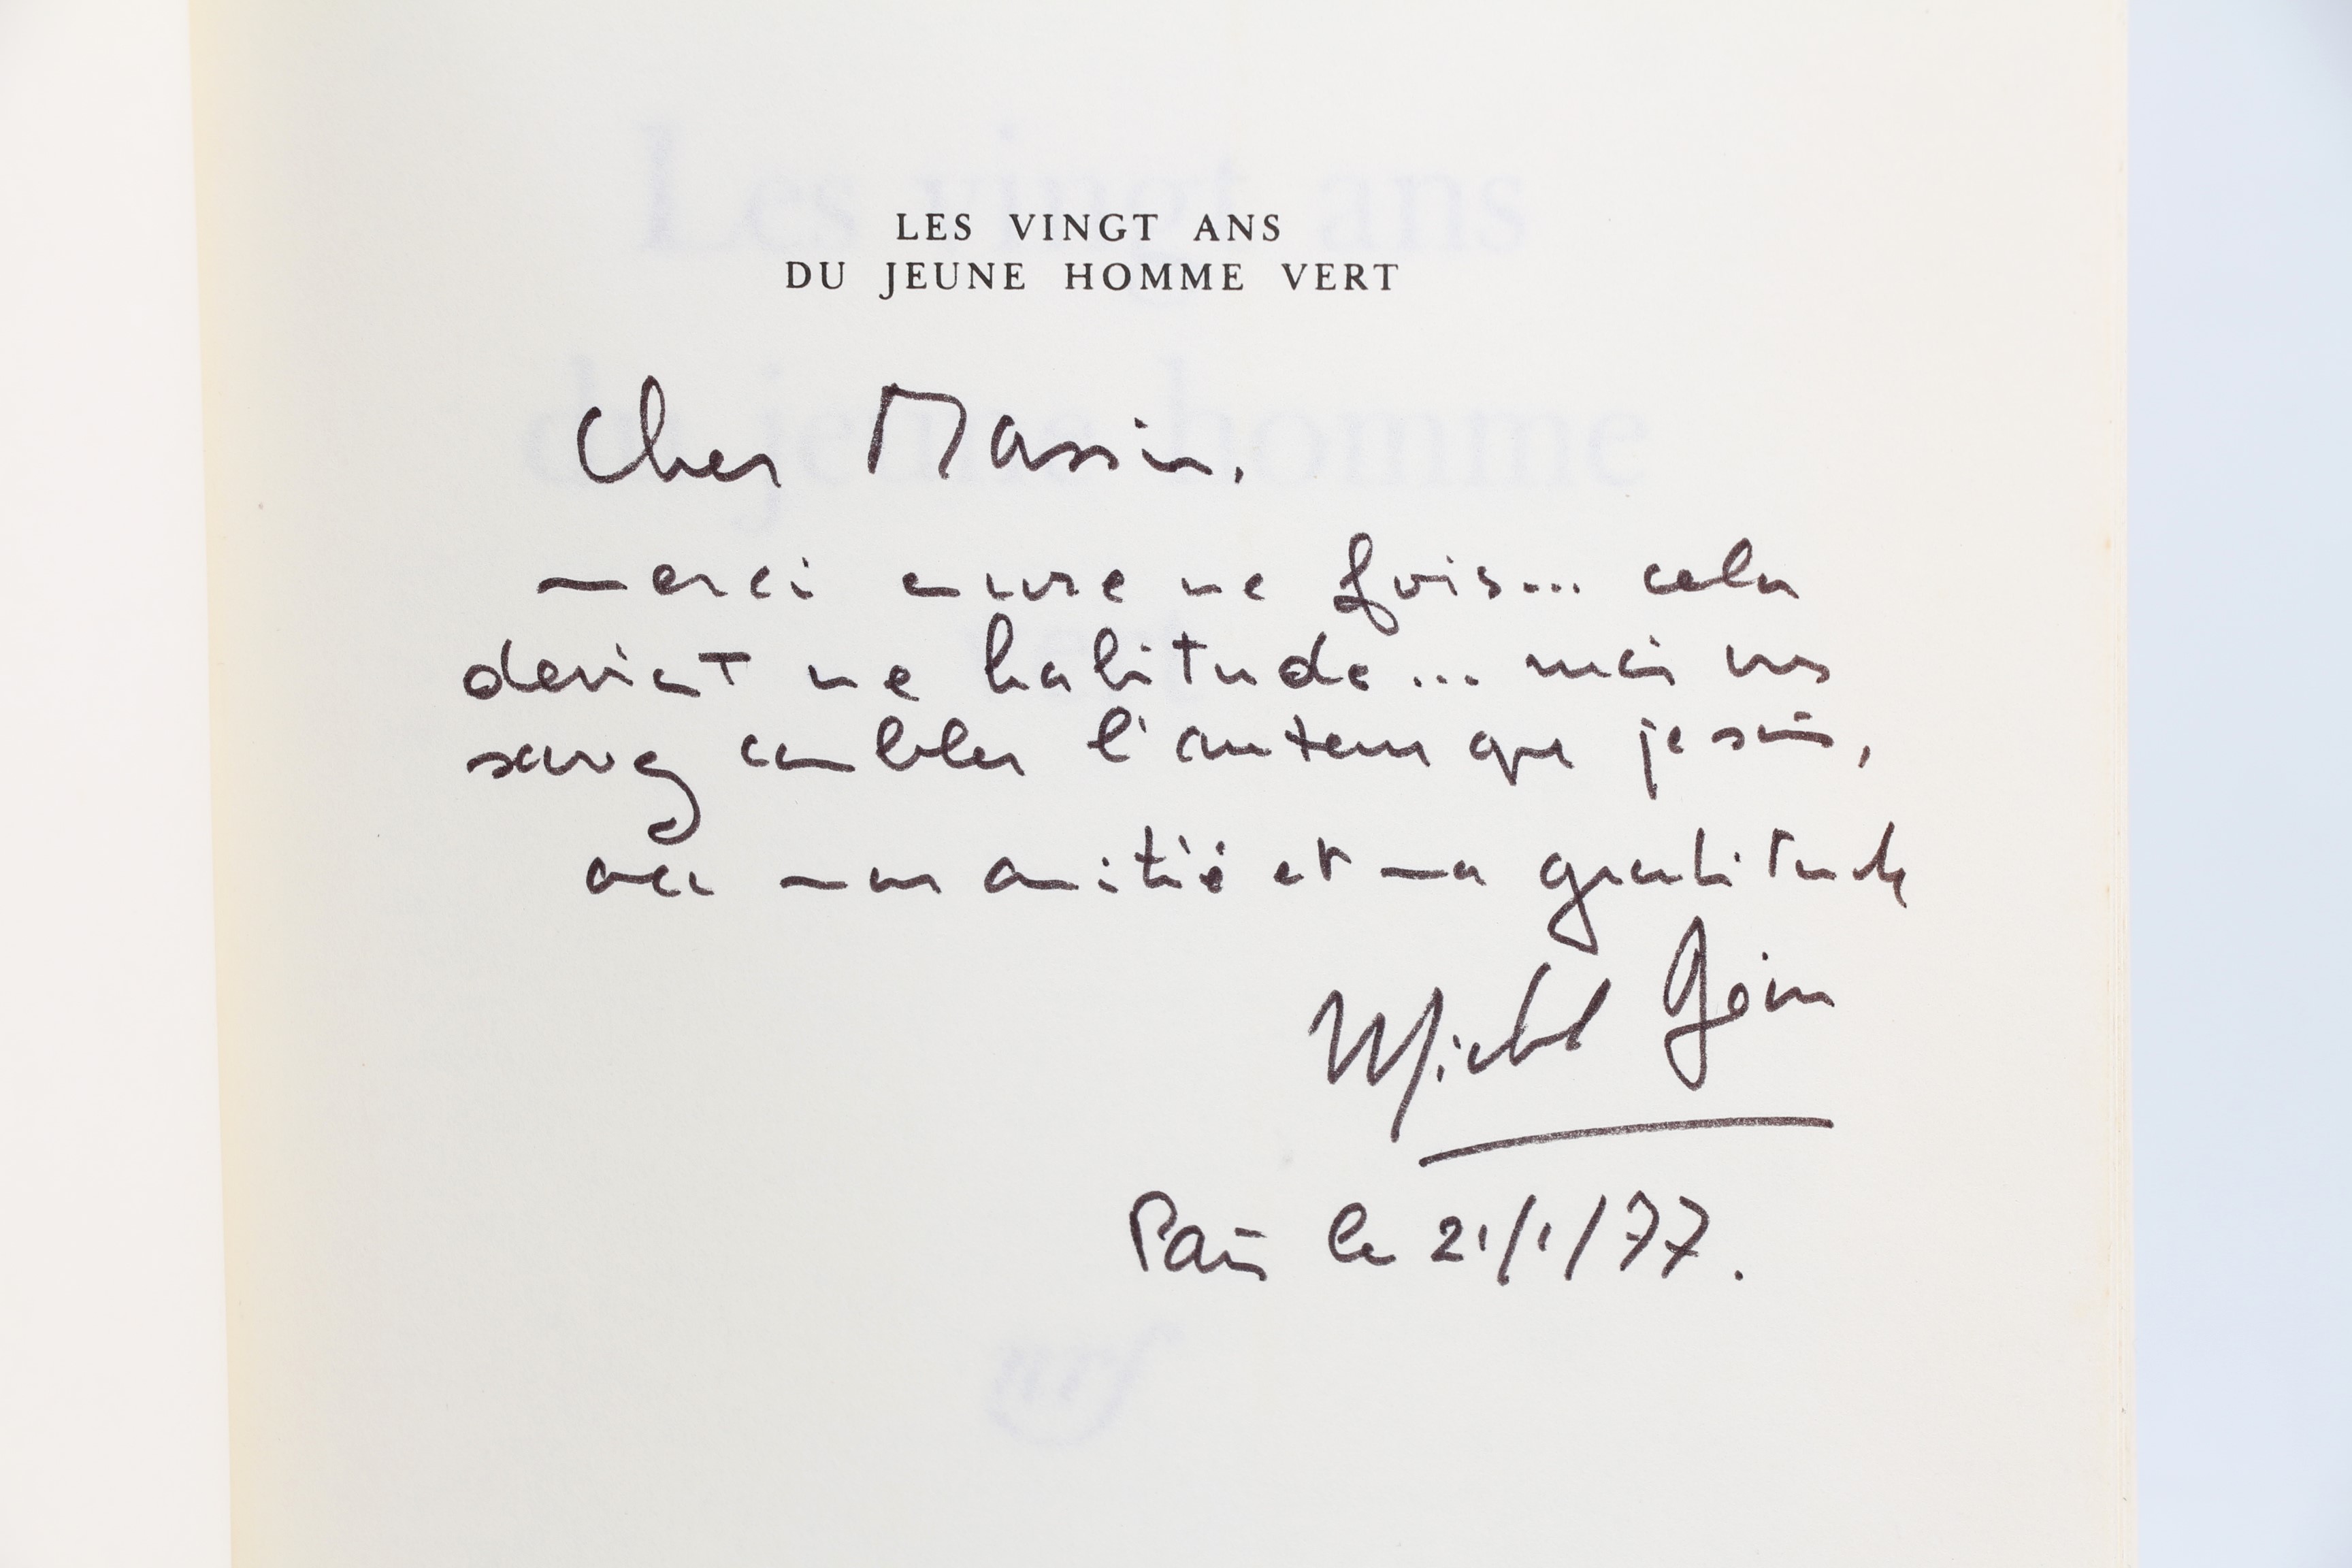 LES VINGT ANS
DU JEUNE HOMME VERT
Cher Massin,
merci encore une fois... cela
devient une habitude... mais vous
savez combler l'auteur que je suis,
avec mon amitié et ma gratitude
Michel Déon
Paris le 21/1/77.
Les vingt ans
du jeune homme
vert
nrf